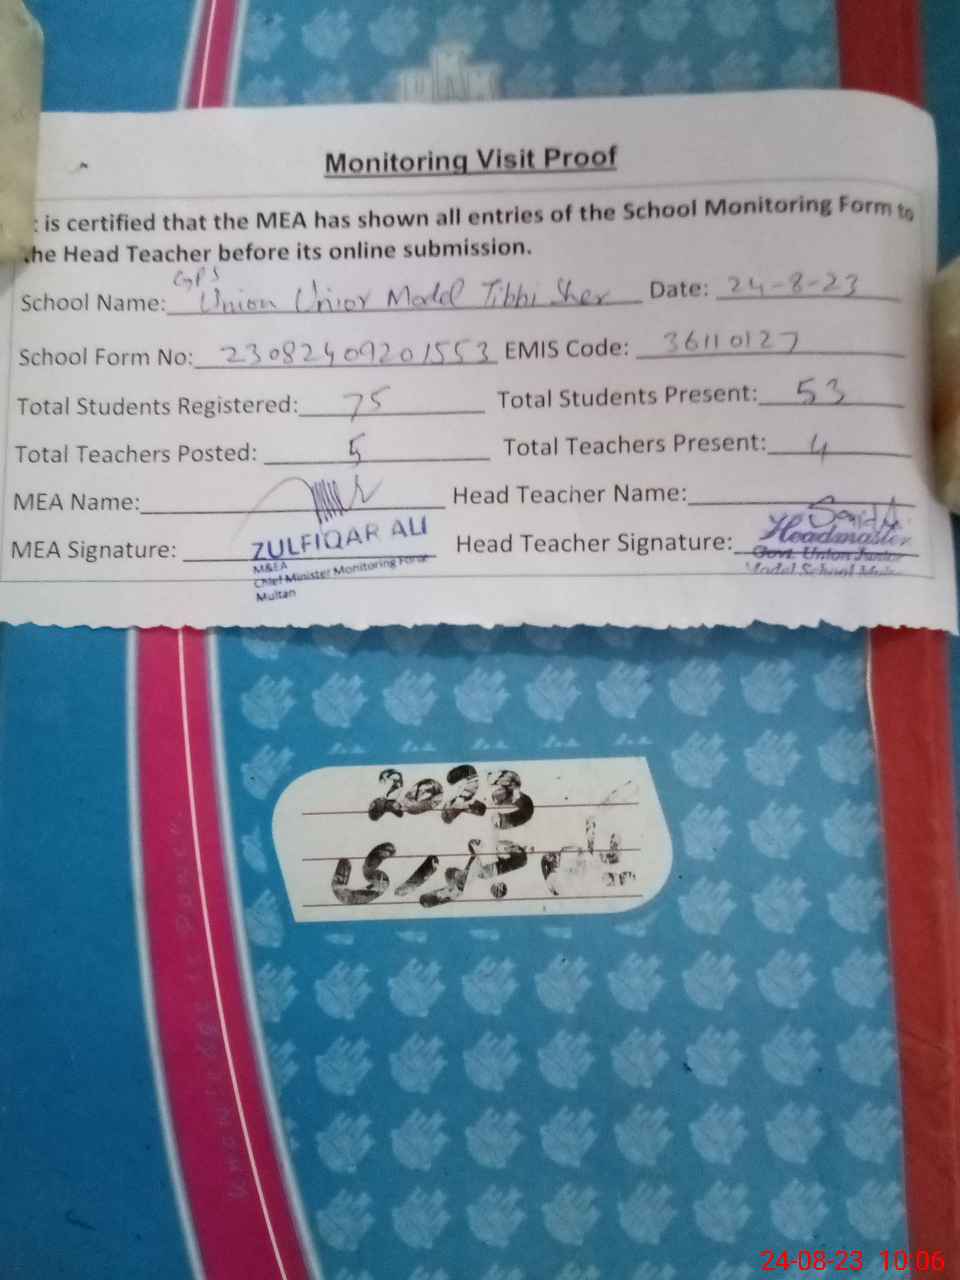 Monitoring Visit Proof
is certified that the MEA has shown all entries of the School Monitoring Form to
the Head Teacher before its online submission.
GPS
School Name: Union Unior Model Tibbi Sher Date: 24-8-23
School Form No: 23082409201553 EMIS Code: 36110127
Total Students Registered: 75 Total Students Present: 53
Total Teachers Posted: 5 Total Teachers Present: 4
MEA Name: Head Teacher Name:
MEA Signature: ZULFIQAR ALI Head Teacher Signature: Headmaster
M&EA Govt. Union Junior
Chief Minister Monitoring Force Model School
Multan
2023
جنوری
24-08-23 10:06